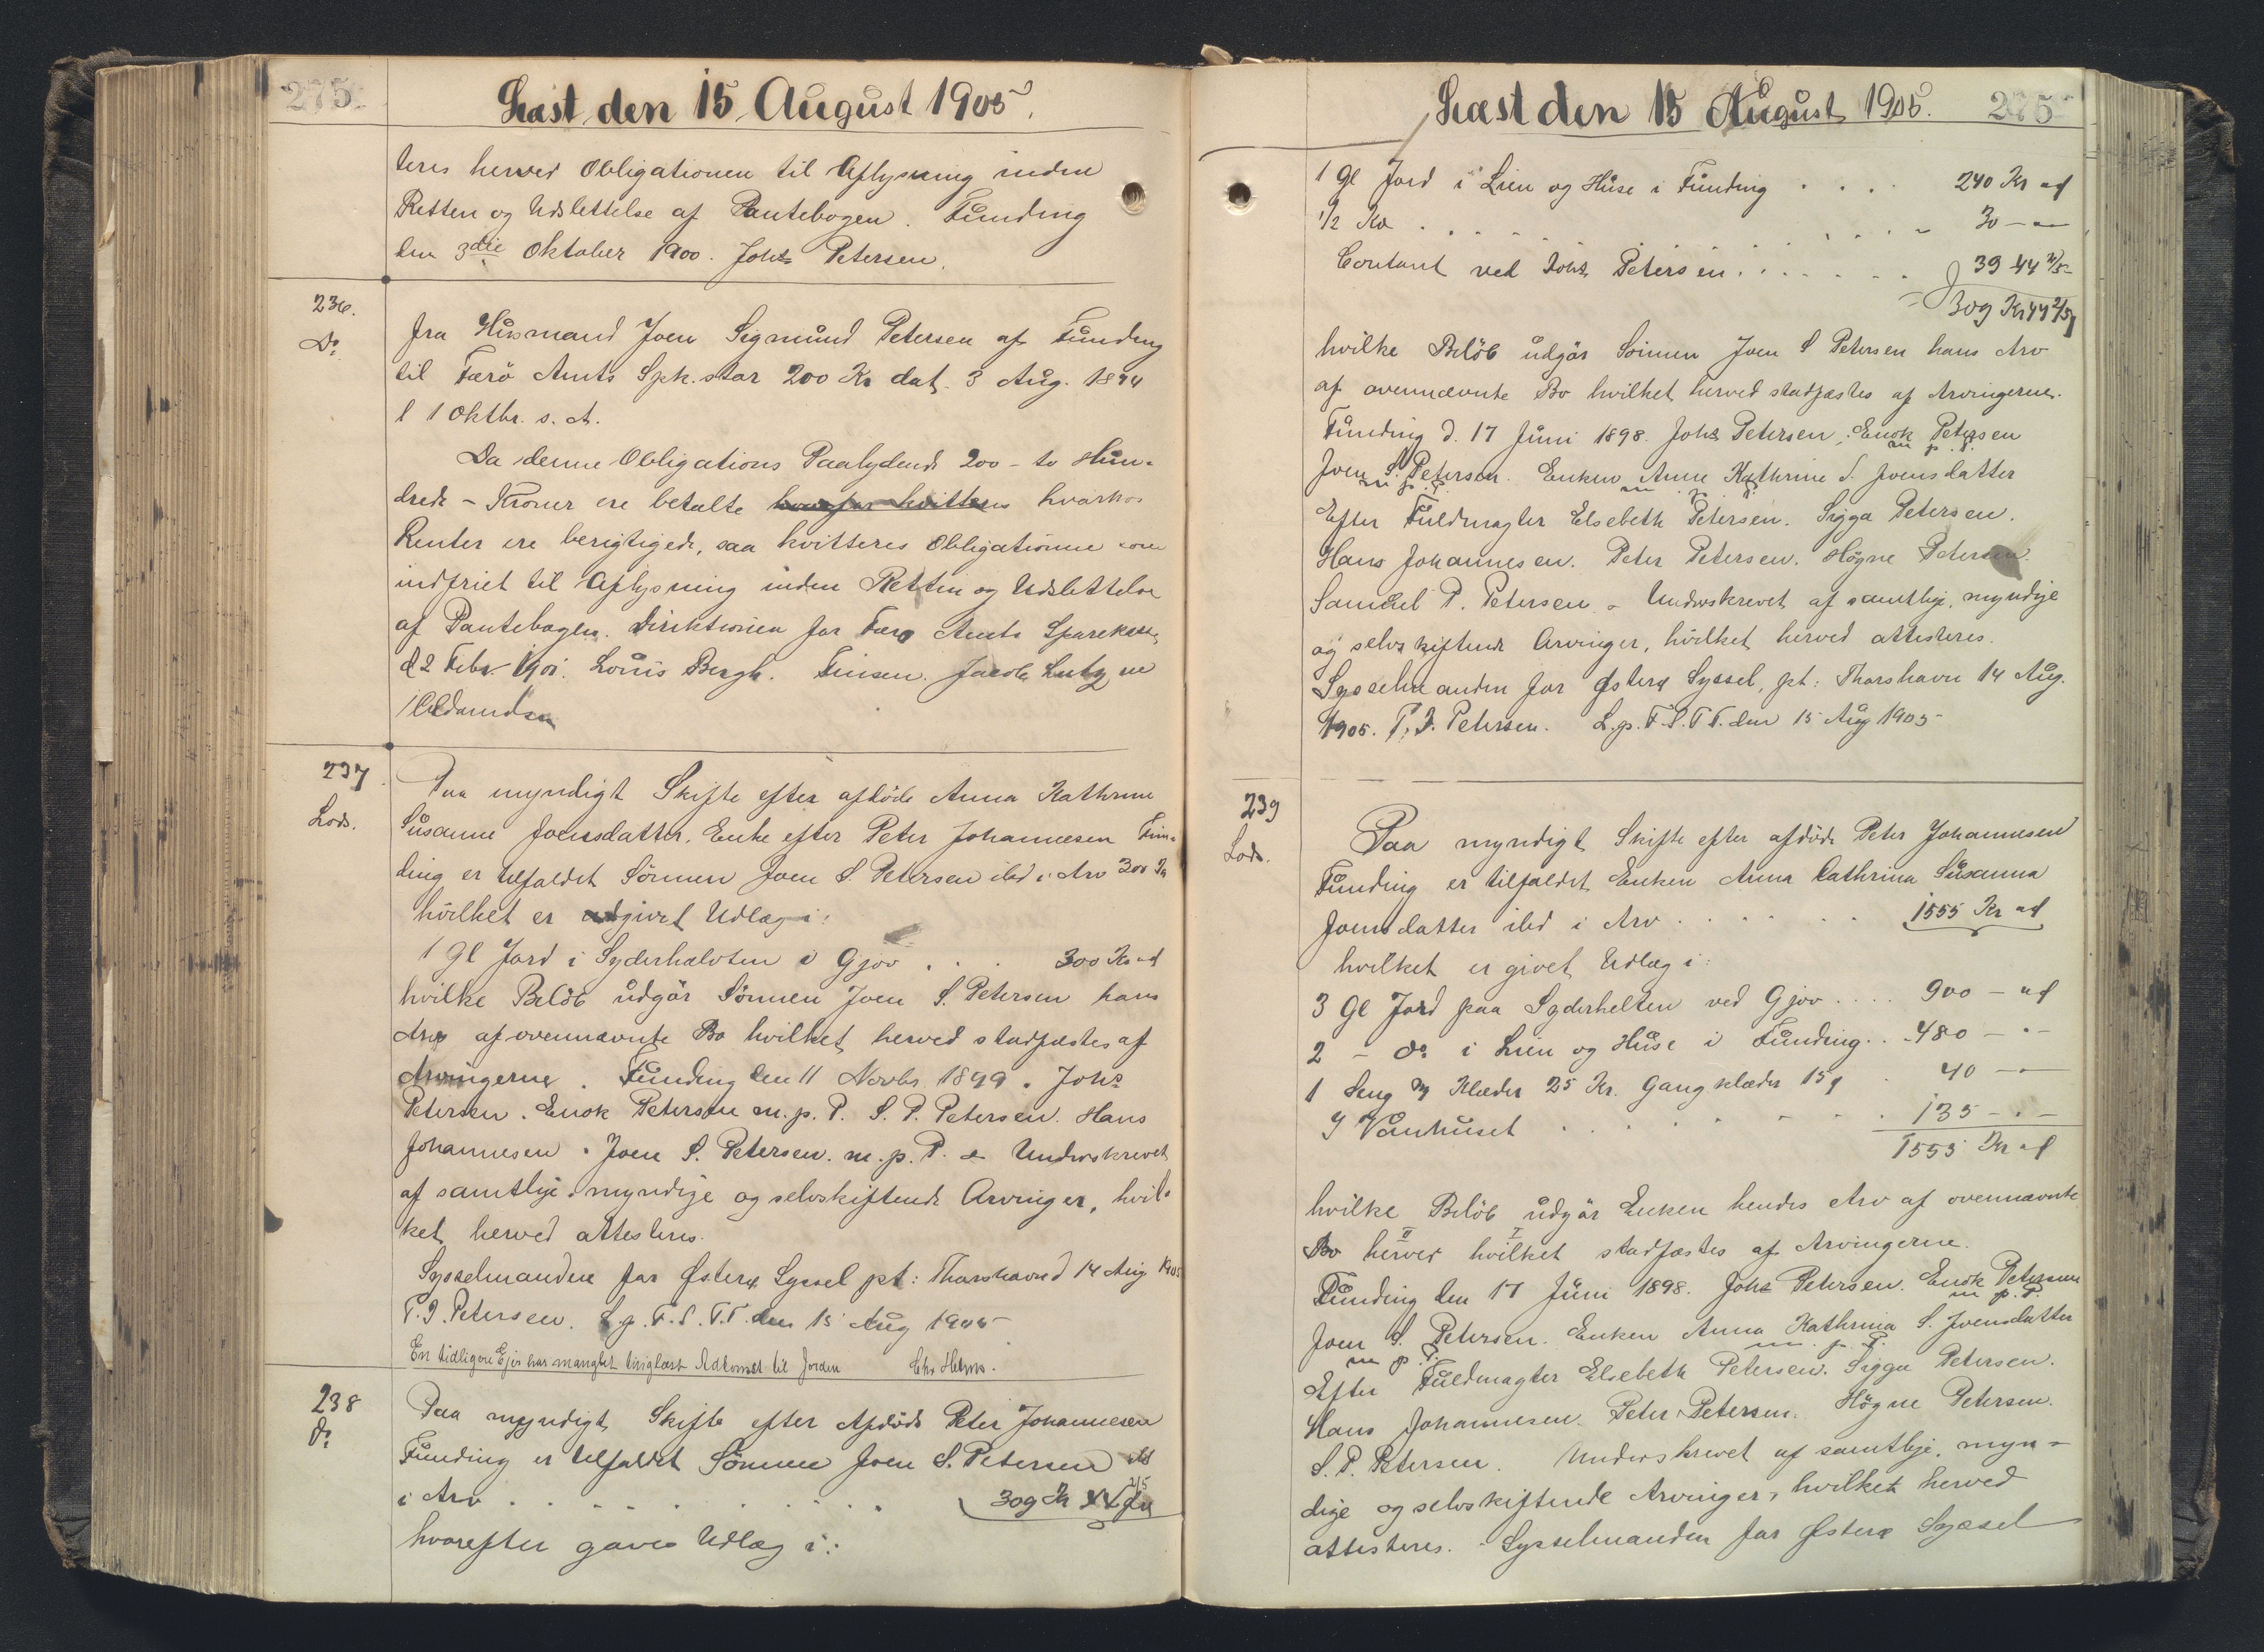 275
Læst den 15 August 1905.
teres herved Obligationen til Aflysning inden
Retten og Udslettelse af Pantebogen. Funding
den 3die Oktober 1900. Johs Petersen.
236.
Do
fra Husmand Joen Sigmund Petersen af Funding
til Færö Amts Spk. stor 200 Kr dat. 3 Aug. 1894
l 1 Oktbr. s. A.
Da denne Obligations Paalydende 200 - to Hun-
drede - Kroner ere betalte hvorfor kvitteres hvorhos
Renter ere berigtigede, saa kvitteres Obligationen som
indfriet til Aflysning inden Retten og Udslettelse
af Pantebogen. Direktionen for Færø Amts Sparekasse,
d 2 Febr. 1901. Louis Bergh. Finsen. Jacob Lutzen
237.
Lods.
Paa myndigt Skifte efter afdöde Anna Kathrine
Susanne Joensdatter, Enke efter Peter Johannesen Fun-
ding er tilfaldet Sönnen Joen S. Petersen ibd i Arv 300 Kr
hvilket er udgivet Udlæg i:
1 Gl Jord i Syderhalvten i Gjov . . . 300 Kr ad
hvilke Belöb udgör Sönnen Joen S. Petersen hans
Arv af ovennævnte Bo hvilket herved stadfæstes af
Arvingerne. Funding den 11 Novbr. 1899. Johs
Petersen. Enok Petersen m.p.P. S. P. Petersen. Hans
Johannesen. Joen S. Petersen. m.p.P. - Underskrevet
af samtlige myndige og selvskiftende Arvinger, hvil-
ket herved attesteres.
Sysselmanden for Østerø Syssel pt: Thorshavn d 14 Aug 1905
P. J. Petersen. L.p.F.S.T.T. den 15 Aug 1905
En tidligere Ejer har manglet tinglæst Adkomst til Jorden
238
do
Paa myndigt Skifte efter Afdöde Peter Johannesen
Funding er tilfaldet Sönnen Joen S. Petersen ibd
i Arv . . . . . . . . . . 309 Kr 44 2/5 Ør
hvorefter gaves Udlæg i:
Læst den 15 August 1905. 275
1 Gl Jord i Lien og Huse i Funding . . . . 240 Kr ad
1/2 Ko . . . . . . . . . . 30 - "-
Contant ved Johs Petersen . . . . . . . 39 44 2/5
309 Kr 44 2/5
hvilke Belöb udgör Sönnen Joen S Petersen hans Arv
af ovennævnte Bo hvilket herved stadfæstes af Arvingerne.
Funding d. 17 Juni 1898. Johs Petersen. Enok Petersen
m. p. P.
Joen S. Petersen. Enken Anne Kathrine S. Joensdatter
m p. P. m. p. P.
Efter Fuldmagter Elsebeth Petersen. Sigga Petersen.
Hans Johannesen. Peter Petersen. Högne Petersen.
Samuel P. Petersen. - Underskrevet af samtlige, myndige
og selvskiftende Arvinger, hvilket herved attesteres.
Sysselmanden for Østerø Syssel, pt: Thorshavn 14 Aug.
1905. P. J. Petersen. L.p.F.S.T.T. den 15 Aug 1905
239
Lods.
Paa myndigt Skifte efter afdöde Peter Johannesen
Funding er tilfaldet Enken Anna Cathrina Susanna
Joensdatter ibd i Arv . . . . . . 1555 Kr ad
hvilket er givet Udlæg i:
3 Gl Jord paa Syderhelten ved Gjov . . . . 900 - ad
2 - do i Lien og Huse i Funding . . 480 - " -
1 Seng m Klæder 25 Kr. Gangklæder 15 . 40 - -
I Vaanhuset . . . . . . . . 135 - " -
1555 Kr ad
hvilke Belöb udgör Enken hendes Arv af ovennævnte
II I
Bo herved hvilket stadfæstes af Arvingerne.
Funding den 17 Juni 1898. Johs Petersen. Enok Petersen
m p. P.
Joen S. Petersen. Enken Anna Kathrina S. Joensdatter
m p. P. m. p. P.
Efter Fuldmagter Elsebeth Petersen. Sigga Petersen.
Hans Johannesen. Peter Petersen. Högne Petersen.
S. P. Petersen. Underskrevet af samtlige, myn-
dige og selvskiftende Arvinger, hvilket herved
attesteres. Sysselmanden for Østerø Syssel